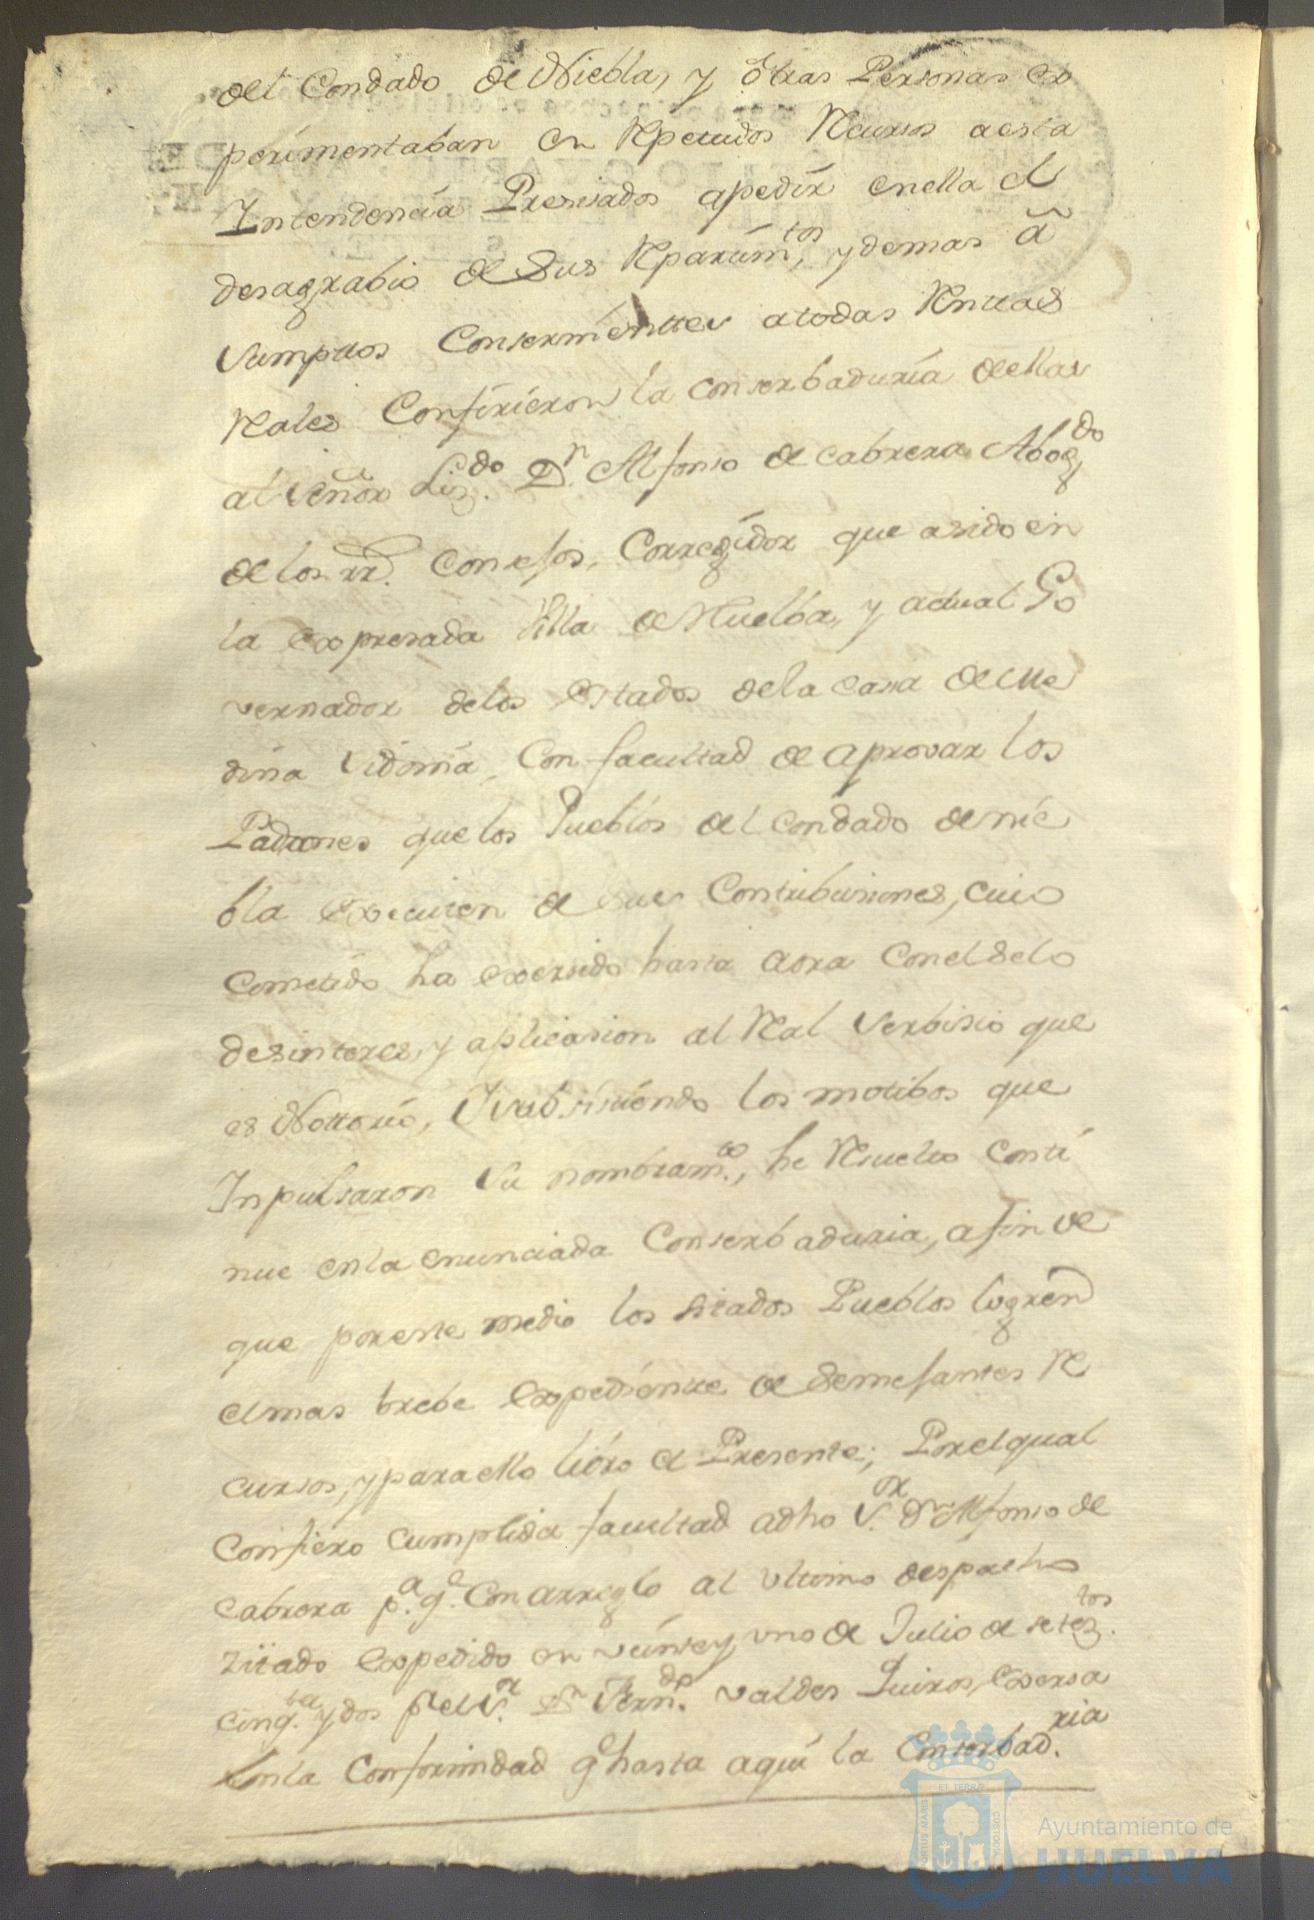 del Condado de Niebla, y otras Personas ex
perimentaban en Repetidos Recursos a esta
Intendencia Presisados apedir enella el
desagrabio de Sus Repartim.tos, y demas a
sumptos Conserníenttes atodas Renttas
Reales Confirieron la conserbaduría deellas
al Señor Liz.do Dn. Alfonso de cabrera Abog.do
de los rr.s consejos, Corregidor que asido en
la expresada Villa de Huelba, y actual Go
vernador delos Estados dela casa de Me
dina Sidonia, Con facultad de aprovar los
Padrones que los Pueblos del condado de nie
bla executen de sus Contribusiones, cuio
cometido ha exersido hasta aora conel Selo
desinteres, y aplicasion al Real Serbisio que
es Nottorio, Y subsistiendo los motibos que
Inpulsaron su nombram.to, he Resuelto conti
nue enla enunciada Conserbaduria, a fin de
que por este medio los sitados Pueblos logren
el mas brebe expediente de Semejantes Re
cursos, y para ello libro el Presente; Porelqual
Confiero cumplida facultad adho S.or Dn Alfonso de
Cabrera p.a q.e Con arreglo al ultimo despacho
zitado expedido en veinte y uno de Julio de setez.tos
cinq.ta y dos p.r el S.or Dn Fern.do Valdes Quiros, exersa
enla Conformidad q.e hasta aqui la Conserbad.ria
ET TERRÆ
PORTUS MARIS
CUSTODIA
Ayuntamiento de
HUELVA